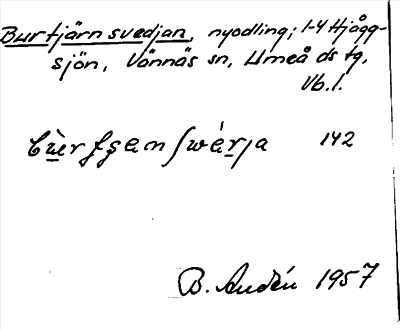 Burtjärnsvedjan, nyodling; 1-4 Hjågg-
sjön, Vännäs sn, Umeå ds tg,
Vb.l.
142
B. Audén 1957